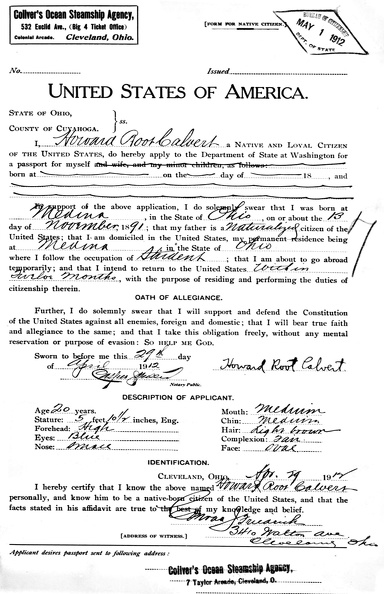 Collver's Ocean Steamship Agency,
532 Euclid Ave., (Big 4 Ticket Office)
Colonial Arcade. Cleveland, Ohio.
[FORM FOR NATIVE CITIZEN.]
BUREAU OF CITIZENSHIP
MAY 1 1912
DEPT. OF STATE
No. Issued
UNITED STATES OF AMERICA.
STATE OF OHIO,
COUNTY OF CUYAHOGA. } ss.
I, Howard Root Calvert, a NATIVE AND LOYAL CITIZEN
OF THE UNITED STATES, do hereby apply to the Department of State at Washington for
a passport for myself and wife, and my minor children, as follows:
born at on the day of 18 , and
In support of the above application, I do solemnly swear that I was born at
Medina, in the State of Ohio, on or about the 13
day of November, 1891; that my father is a Naturalized citizen of the
United States; that I am domiciled in the United States, my permanent residence being
at Medina in the State of Ohio
where I follow the occupation of Student; that I am about to go abroad
temporarily; and that I intend to return to the United States within
twelve months, with the purpose of residing and performing the duties of
citizenship therein.
OATH OF ALLEGIANCE.
Further, I do solemnly swear that I will support and defend the Constitution
of the United States against all enemies, foreign and domestic; that I will bear true faith
and allegiance to the same; and that I take this obligation freely, without any mental
reservation or purpose of evasion: SO HELP ME GOD.
Sworn to before me this 29th day
of April 1912
Howard Root Calvert.
Notary Public.
DESCRIPTION OF APPLICANT.
Age: 20 years.
Stature: 5 feet 10 1/2 inches, Eng.
Forehead: High
Eyes: Blue
Nose: Small
Mouth: Medium
Chin: Medium
Hair: Light brown
Complexion: Fair
Face: Oval
IDENTIFICATION.
CLEVELAND, OHIO, Apr. 29 1912
I hereby certify that I know the above named Howard Root Calvert
personally, and know him to be a native-born citizen of the United States, and that the
facts stated in his affidavit are true to the best of my knowledge and belief.
[ADDRESS OF WITNESS.] 3410 Walton Ave
Cleveland Ohio
Applicant desires passport sent to following address:
Collver's Ocean Steamship Agency.
7 Taylor Arcade, Cleveland, O.